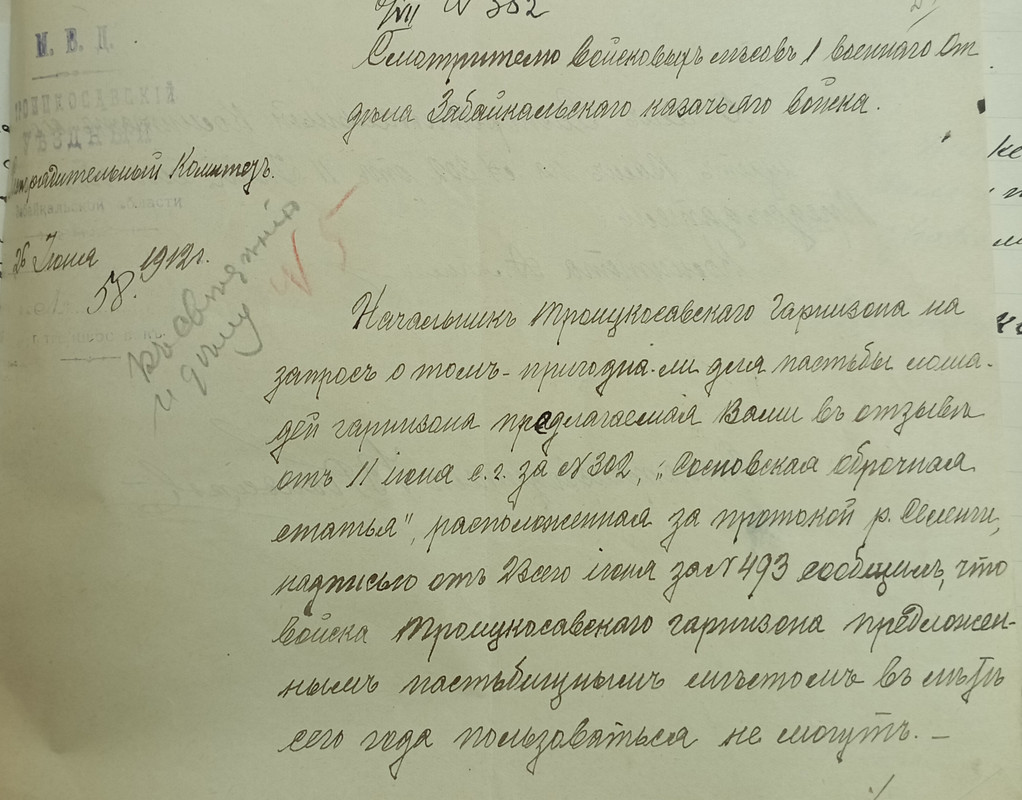 № 302
Смотрителю войсковыхъ лѣсовъ 1 военнаго От
дѣла Забайкальскаго казачьяго войска.
М. В. Д.
ТРОИЦКОСАВСКІЙ
УѢЗДНЫЙ
Распорядительный Комитетъ.
Забайкальской области
26 Іюня 1912 г.
58.
къ свѣдѣнію
и дѣлу
№ 5
Начальникъ Троицкосавскаго Гарнизона на
запросъ о томъ - пригодна-ли для пастьбы лоша-
дей гарнизона предлагаемая Вами въ отзывѣ
отъ 11 іюня с. г. за № 302, „Сосновская оброчная
статья", расположенная за протокой р. Селенги,
надписью отъ 23сего іюня за № 493 сообщилъ, что
войска Троицкосавскаго гарнизона предложен-
нымъ пастьбищнымъ мѣстомъ въ лѣтѣ
сего года пользоваться не могутъ. —